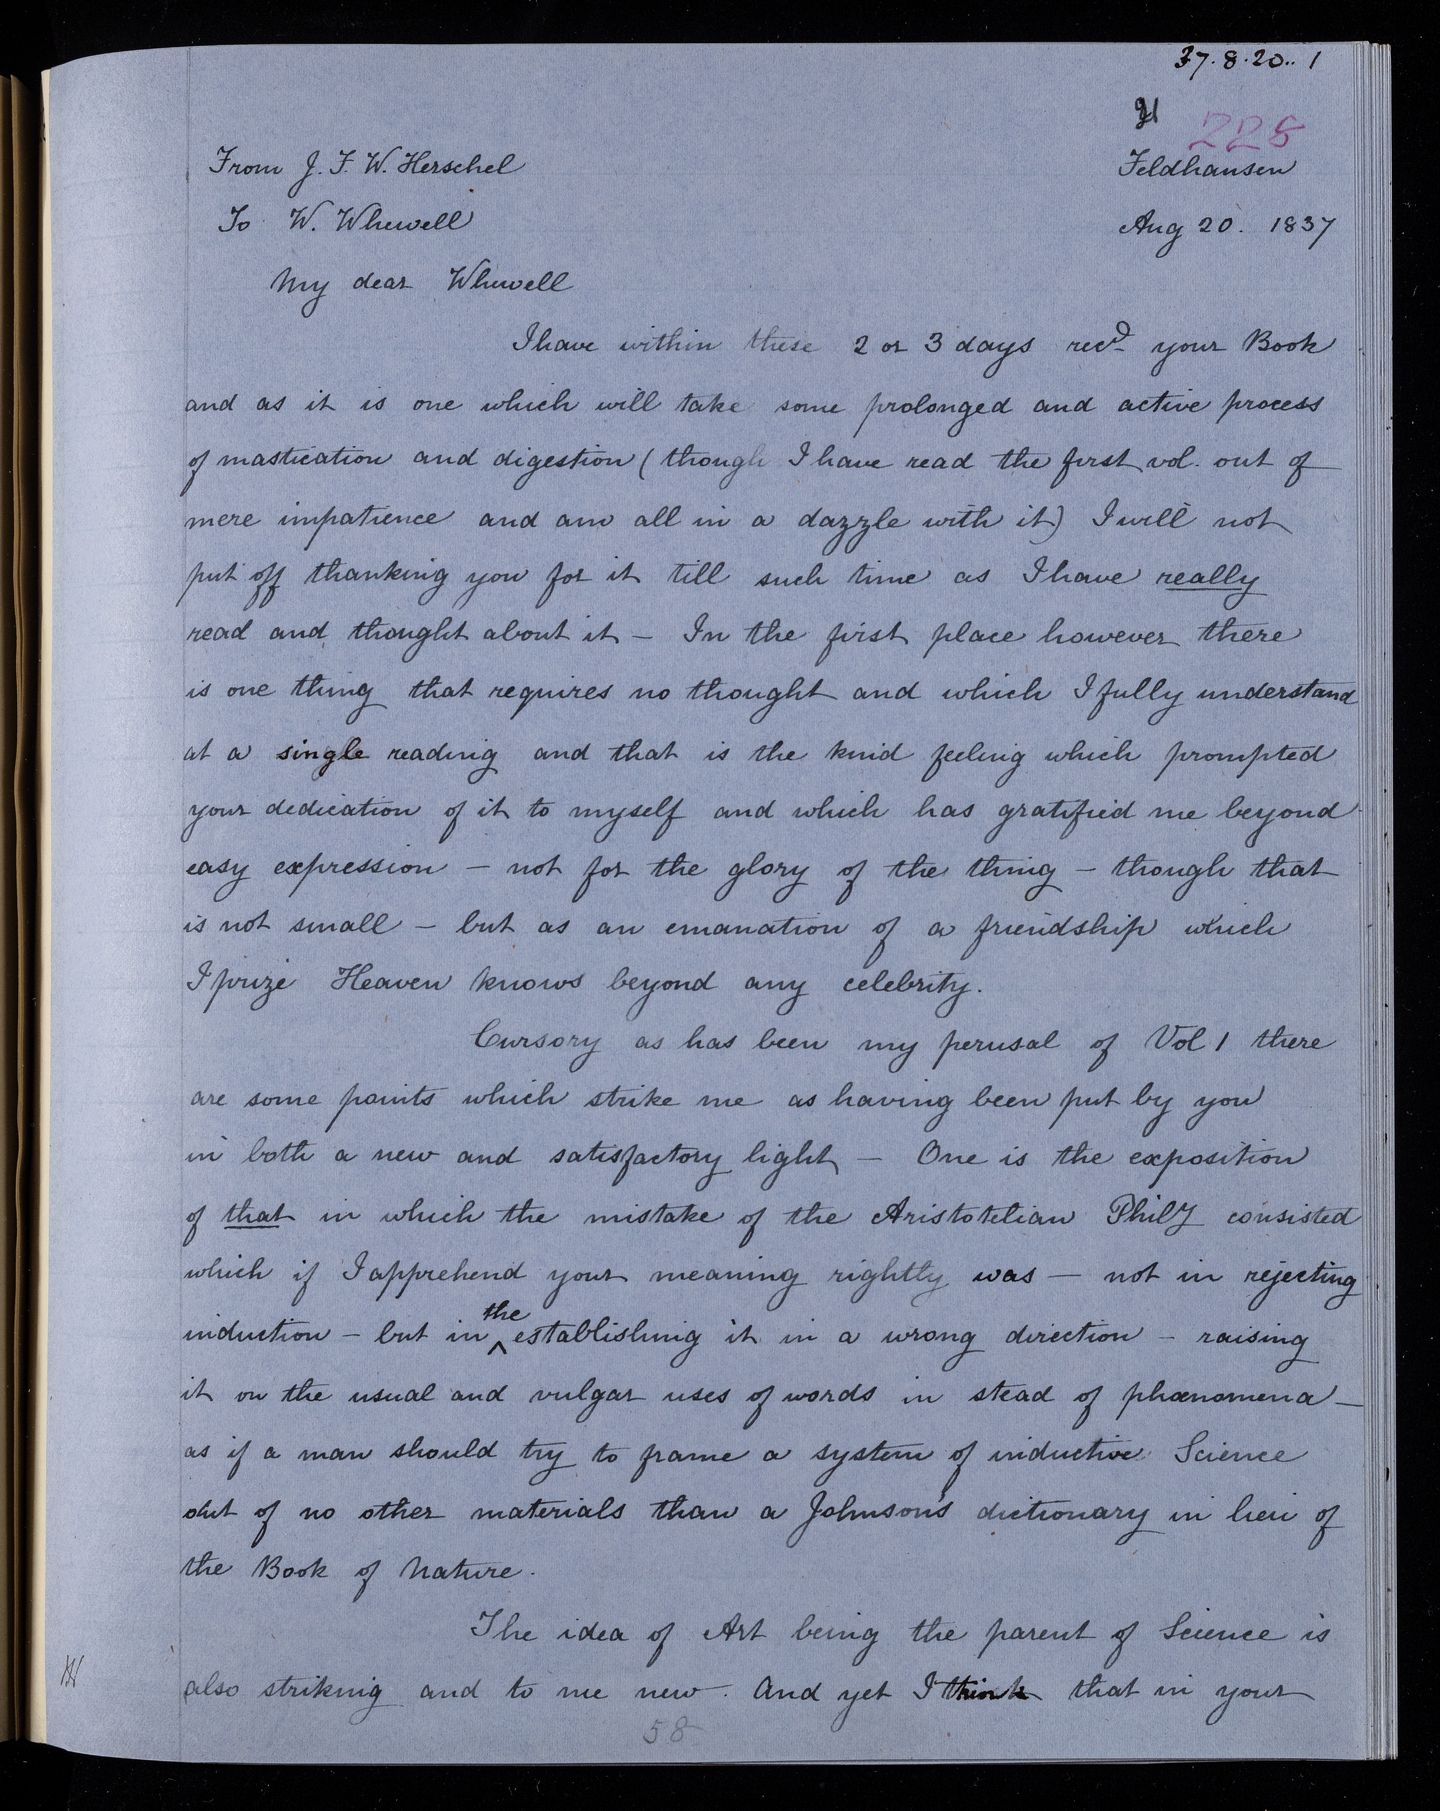 37.8.20.. 1
H
228
From J. F. W. Herschel
Feldhausen
To W. Whewell
Aug 20. 1837
My dear Whewell
I have within these 2 or 3 days recd your Book
and as it is one which will take some prolonged and active process
of mastication and digestion (though I have read the first vol. out of
mere impatience and am all in a dazzle with it) I will not
put off thanking you for it till such time as I have really
read and thought about it – In the first place however there
is one thing that requires no thought and which I fully understand
at a single reading and that is the kind feeling which prompted
your dedication of it to myself and which has gratified me beyond
easy expression – not for the glory of the thing – though that
is not small – but as an emanation of a friendship which
I prize Heaven knows beyond any celebrity.
Cursory as has been my perusal of Vol 1 there
are some points which strike me as having been put by you
in both a new and satisfactory light – One is the exposition
of that in which the mistake of the Aristotelian Phily consisted
which if I apprehend your meaning rightly was – not in rejecting
induction – but in the establishing it in a wrong direction – raising
it on the usual and vulgar uses of words in stead of phænomena –
as if a man should try to frame a system of inductive Science
out of no other materials than a Johnson's dictionary in lieu of
the Book of Nature.
The idea of Art being the parent of Science is
also striking and to me new. And yet I think that in your
58